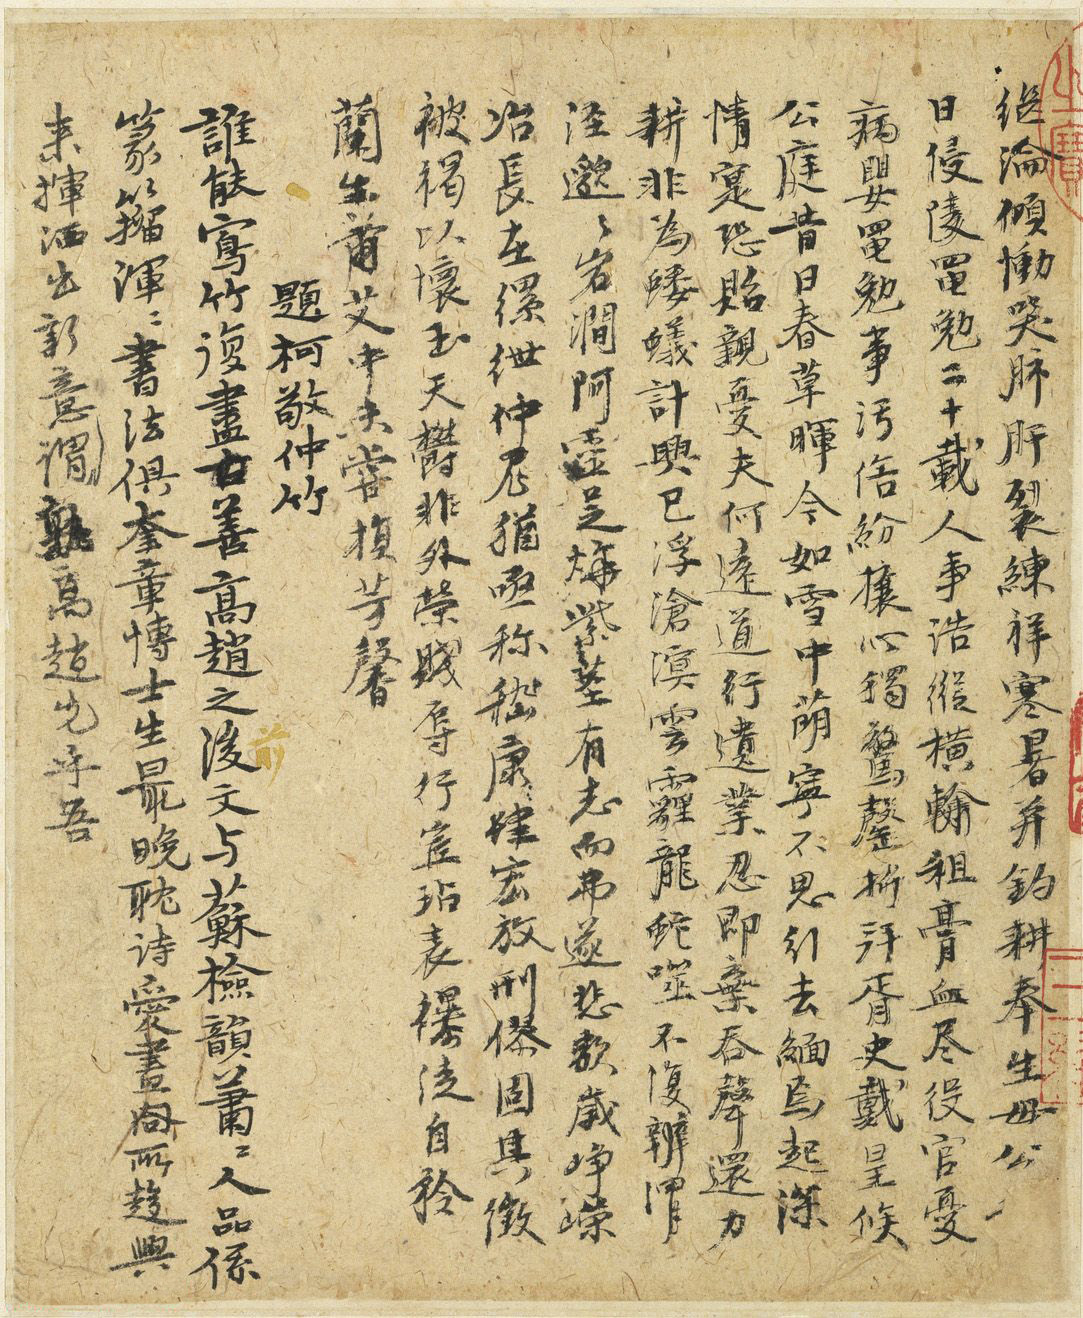 從淪傾慟哭肺肝裂練祥寒暑并釣耕奉生母公
日侵陵黽勉二十載人事浩縱橫輸租膏血尽役官憂
病嬰黽勉事污俗紛攘心獨驚罄折拜胥史戴星候
公庭昔日春草暉今如雪中萌寧不思引去緬焉起深
情寔恐貽親憂夫何遠道行遺業忍即棄吞聲還力
耕非為螻蟻計興已浮滄溟雲霾龍蛇噬不復辨渭
涇邈〻岩澗阿靈芝燁紫莖有志而弗遂悲歌歲崢嶸
冶長在縲紲仲尼猶亟称嵇康肆宏放刑僇固其徵
被褐以懷玉天爵非外榮賤辱行豈玷表襮徒自矜
蘭生蕭艾中未嘗損芳馨
題柯敬仲竹
誰能寫竹復盡善高趙之後文与蘇檢韻蕭〻人品係
篆籀渾〻書法俱奎章博士生最晚耽詩愛畫同所趨興
来揮洒出新意謂孰高趙先乎吾
前